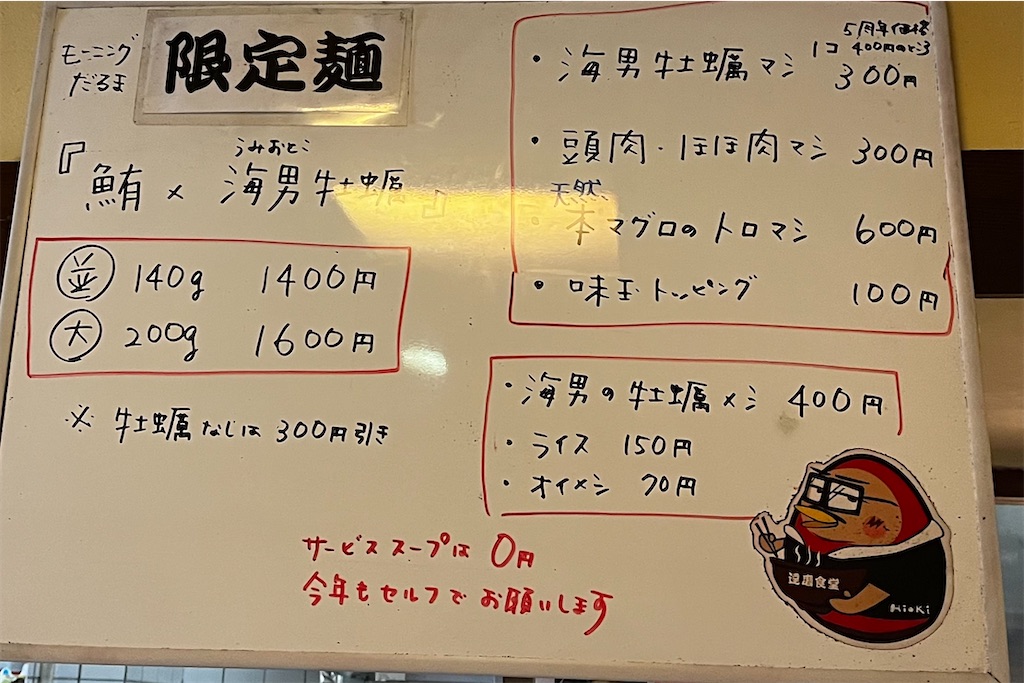 モーニング
だるま
限定麺
うみおとこ
『鮪 × 海男牡蠣』
並 140g 1400円
大 200g 1600円
※ 牡蠣なしは 300円引き
5周年価格
1コ 400円のところ
・海男牡蠣マシ 300円
・頭肉・ほほ肉マシ 300円
・天然本マグロのトロマシ 600円
・味玉トッピング 100円
・海男の牡蠣メシ 400円
・ライス 150円
・オイメシ 70円
サービススープは 0円
今年もセルフでお願いします
達磨食堂
HioKi